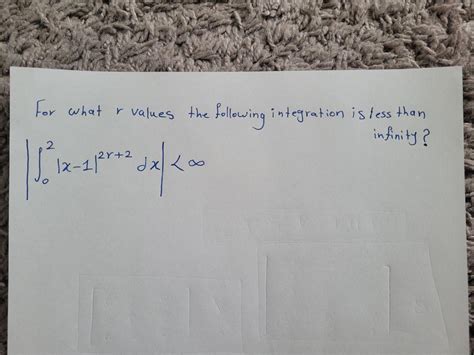 For what r values the following integration is less than
infinity?
|∫₀² |x-1|²ʳ⁺² dx| < ∞